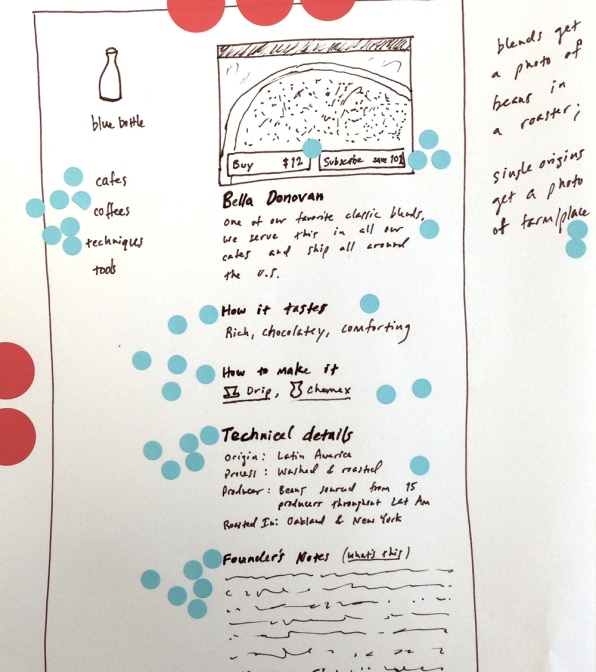 blue bottle
cafes
coffees
techniques
tools
Buy $12
Subscribe save 10%
Bella Donovan
One of our favorite classic blends,
we serve this in all our
cafes and ship all around
the U.S.
How it tastes
Rich, chocolatey, comforting
How to make it
Drip, Chemex
Technical details
Origin: Latin America
Process: Washed & roasted
Producer: Beans sourced from 15
producers throughout Lat Am
Roasted In: Oakland & New York
Founder's Notes (what's this)
blends get
a photo of
beans in
a roaster;
single origins
get a photo
of farm/place